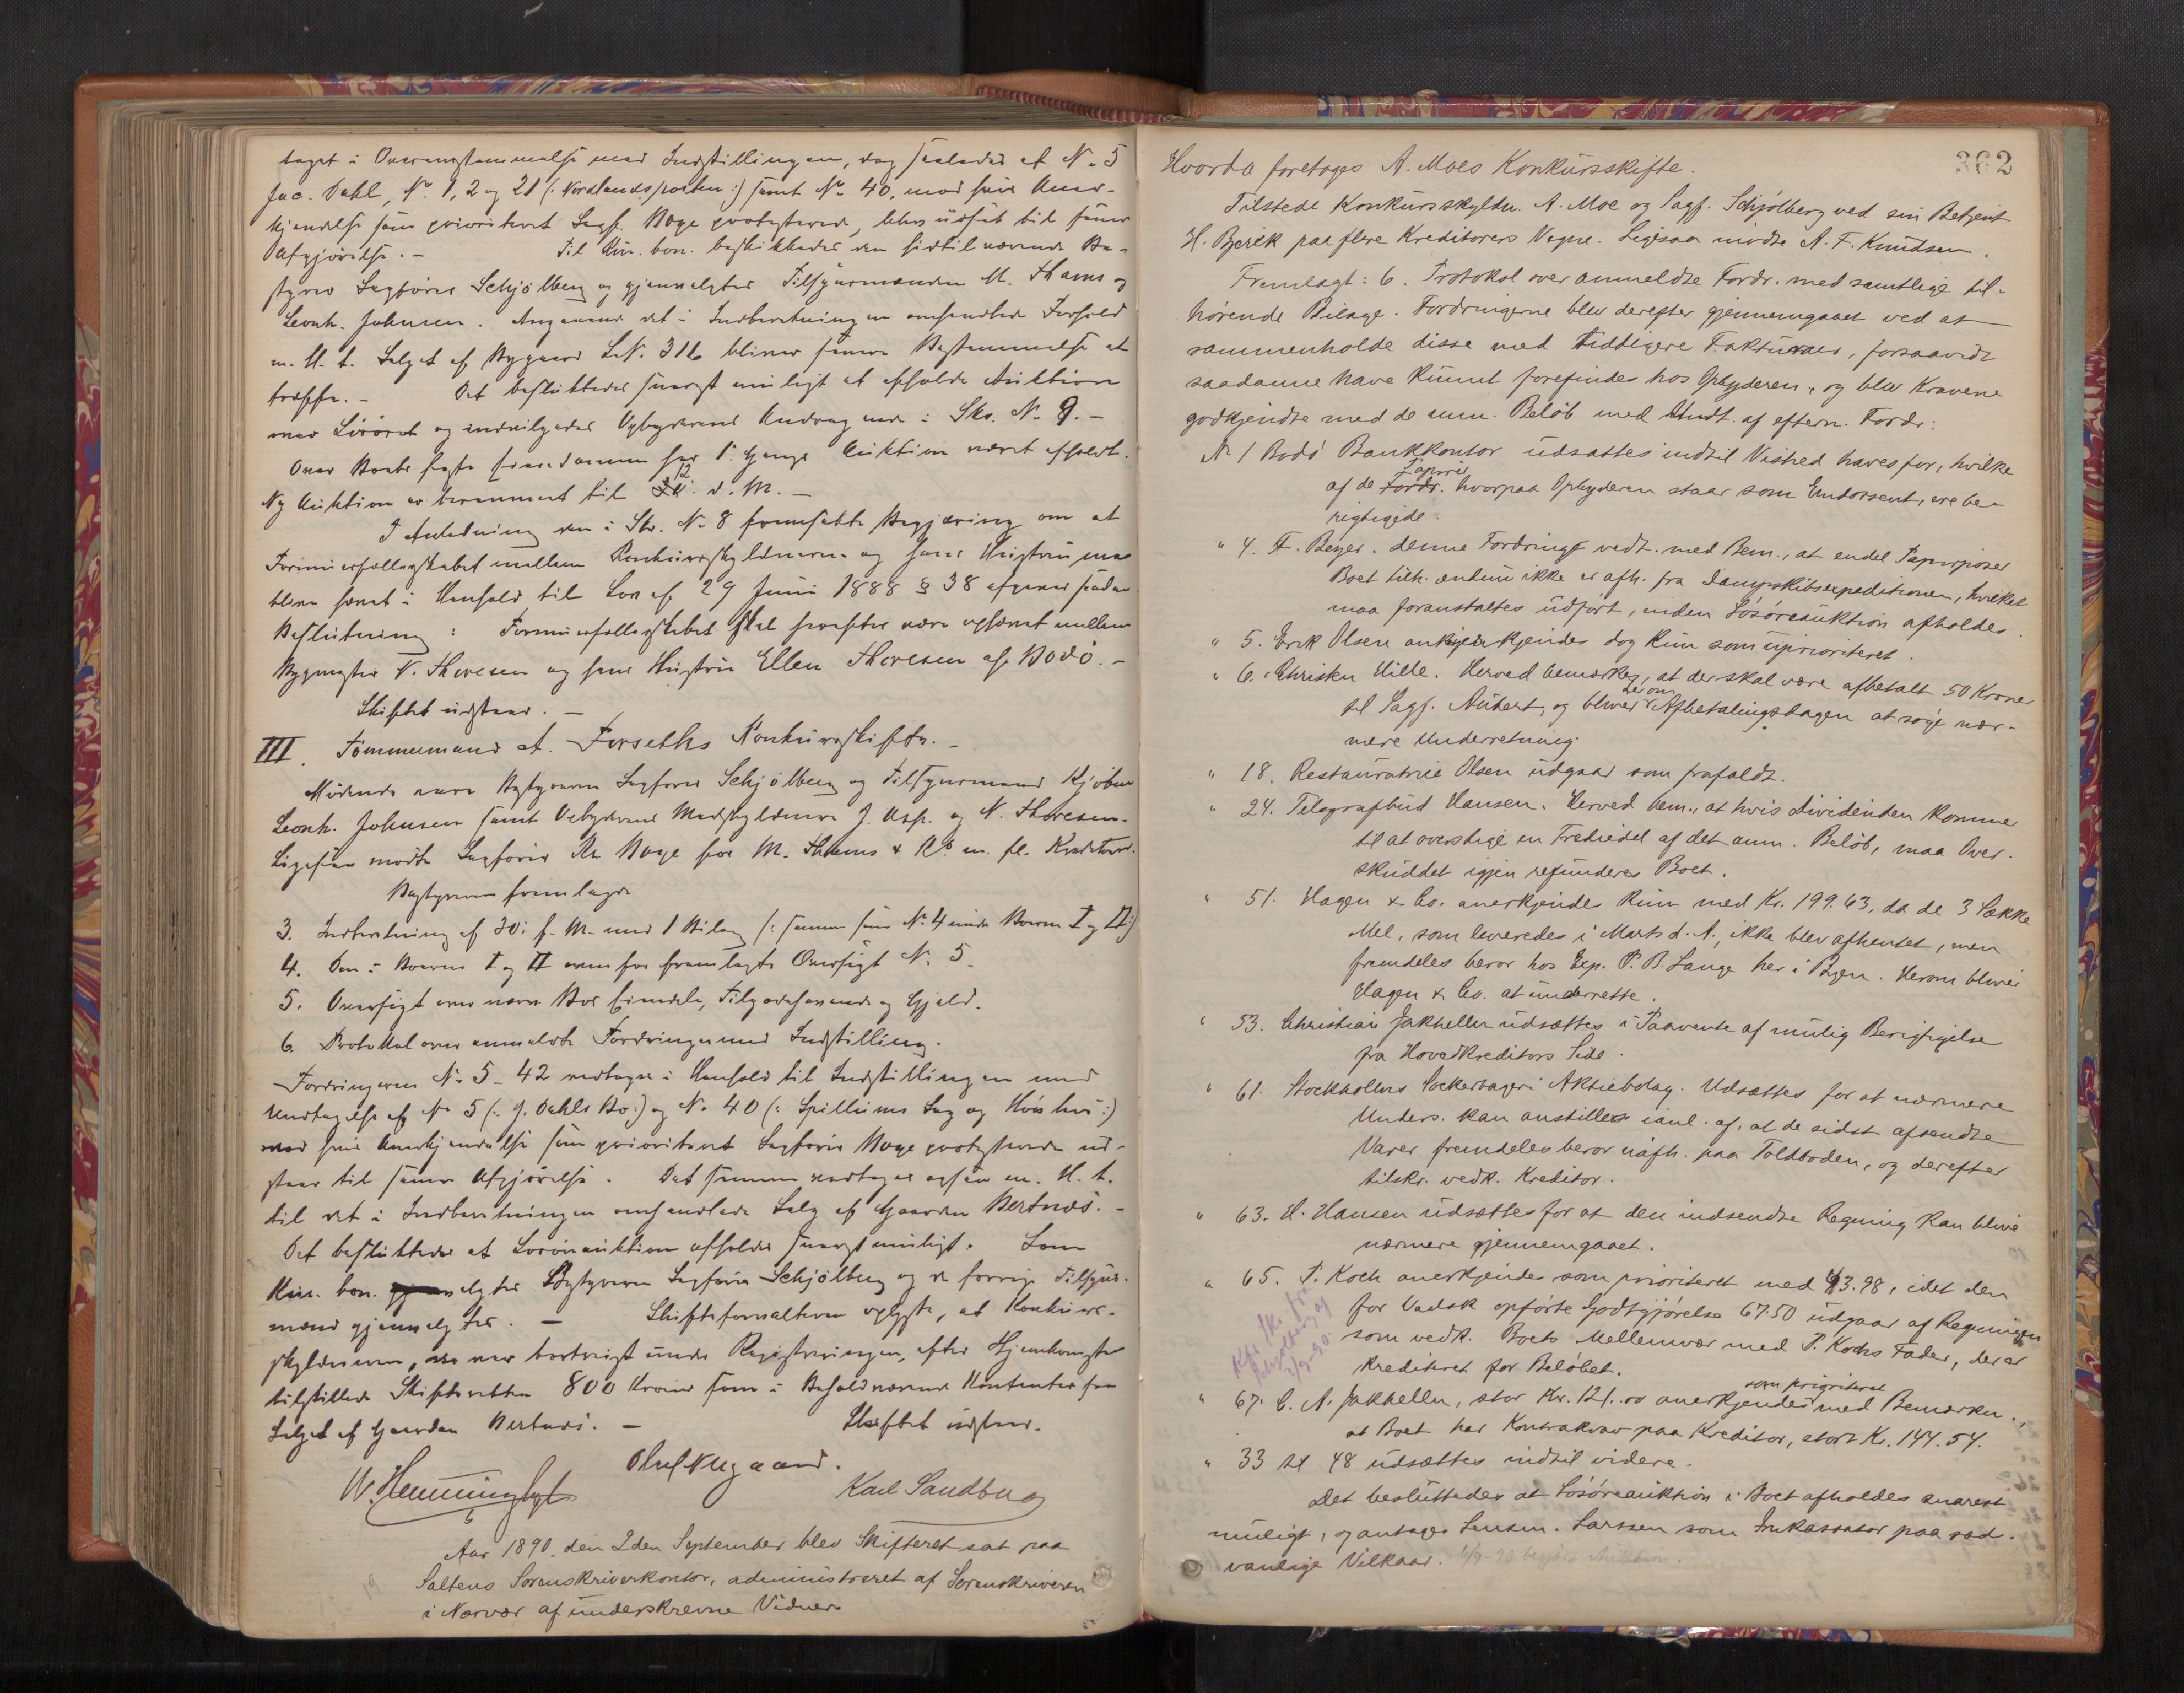 taget i Overensstemmelse med Indstillingen, dog saaledes at No 5
Jac. Dahl, No 1, 2 og 21 (: Nordlandsposten :) samt No 40, mod hvis Aner-
kjendelse som prioriteret Sagf. Moge protesterede, blev udsat til senere
Afgjørelse. – Til Kur. bon. beskikkedes den hidtilværende Be-
styrer Sagfører Schjölberg og gjenvalgtes Tilsynsmændene M. Thams og
Leonh. Johnsen. Angaaende det i Indberetningen omhandlede Forhold
m. H. t. Salget af Bygaard LN. 316 bliver senere Bestemmelse at
træffe. – Det besluttedes snarest muligt at afholde Auktion
over Løsøret og indvilgedes Opbyderens Andragende i Skr. No 9. –
Over Boets faste Eiendomme har 1. Gangs Auktion været afholdt.
Ny Auktion er berammet til 12 d. M. –
I Anledning den i Skr. No 8 fremsatte Begjæring om at
Formuesfællesskabet mellem Konkursskyldneren og hans Hustru maa
blive hævet i Henhold til Lov af 29 Juni 1888 § 38 afgaves saadan
Beslutning: Formuesfællesskabet skal herefter være ophævet mellem
Bygmester N. Thoresen og hans Hustru Ellen Thoresen af Bodö. –
Skiftet udstaar. –
III. Tömmermand A. Forseths Konkursskifte. –
Mödende vare Bestyreren Sagfører Schjölberg og Tilsynsmand Kjöbm.
Leonh. Johnsen samt Opbyderens Medskyldnere J. Asp. og N. Thoresen.
Ligesaa mødte Sagfører Moge for M. Thams & Co m. fl. Kreditorer.
Bestyreren fremlagde
3. Indberetning af 30. f. M. med 1 Bilag (: samme som No 4 under Boerne I og II :)
4. Den i Boerne I og II ovenfor fremlagte Oversigt No 5.
5. Oversigt over nærv. Bos Eiendele, Tilgodehavende og Gjæld.
6. Protokol over anmeldte Fordringer med Indstilling.
Fordringerne No 5–42 vedtages i Henhold til Indstillingen med
Undtagelse af No 5 (: J. Dahls Bo :) og No 40 (: Spillums Sag og Høvleri :)
mod hvis Anerkjendelse som prioriteret Sagfører Moge protesterede ud-
staar til senere Afgjørelse. Det samme vedtages ogsaa m. H. t.
til det i Indberetningen omhandlede Salg af Gaarden Bertnæs. –
Det besluttedes at Løsøreauktion afholdes snarest muligt. Som
Kur. bon. valgtes Bestyreren Sagfører Schjölberg og de forrige Tilsyns-
mænd gjenvalgtes. – Skifteforvalteren oplyste, at Konkurs-
skyldneren, der var bortreist under Registreringen, efter Hjemkomsten
tilstillede Skifteretten 800 Kroner som i Behold værende Kontanter fra
Salget af Gaarden Bertnæs. – Skiftet udstaar.
Oluf Nygaard.
W. Henningsen Karl Sandberg
Aar 1890, den 2den September blev Skifteret sat paa
Saltens Sorenskriverkontor, administreret af Sorenskriveren
i Nærvær af underskrevne Vidner
362
Hvorda foretoges A. Moes Konkursskifte.
Tilstede Konkursskyldn. A. Moe og Sagf. Schjölberg ved sin Betjent
H. Bjerck paa flere Kreditorers Vegne. Ligesaa mødte A. F. Knudsen.
Fremlagt: 6. Protokol over anmeldte Fordr. med samtlige til-
hørende Bilage. Fordringerne blev derefter gjennemgaaet ved at
sammenholde disse med tiddligere Fakturaer, forsaavidt
saadanne have kunnet forefindes hos Opbyderen, og blev Kravene
godkjendte med de anm. Beløb med Undt. af eftern. Fordr:
No 1 Bodö Bankkontor udsættes indtil Vished haves for, hvilke
af de Papirer, hvorpaa Opbyderen staar som Endossent, ere be-
rigtigede.
" 4. F. Beyer. denne Fordring vedt. med Bem., at endel Papirposer
Boet tilh. endnu ikke er afh. fra Dampskibsexpeditionen, hvilket
maa foranstaltes udført, inden Løsøreauktion afholdes.
" 5. Erik Olsen anerkjendes dog kun som uprioriteret.
" 6. Christen Hille. Herved bemærkes, at der skal være afbetalt 50 Kroner
til Sagf. Aubert, og bliver derom Afbetalingsdagen at søge nær-
mere Underretning.
" 18. Restauratrice Olsen udgaar som frafaldt.
" 24. Telegrafbud Hansen. Herved bem., at hvis Dividenden kommer
til at overstige en Trediedel af det anm. Beløb, maa Over-
skuddet igjen refunderes Boet.
" 51. Hagen & Co. anerkjendes kun med Kr. 199.63, da de 3 Sække
Mel, som leveredes i Marts d. A., ikke blev afhentet, men
fremdeles beror hos Exp. P. B. Lange her i Byen. Herom bliver
Hagen & Co. at underrette.
" 53. Christian Jakhelln udsættes i Paavente af mulig Berigtigelse
fra Hovedkreditors Side.
" 61. Stockholms Sockerbageri Aktiebolag. Udsættes for at nærmere
Unders. kan anstilles ianl. af, at de sidst afsendte
Varer fremdeles beror uafh. paa Toldboden, og derefter
tilskr. vedk. Kreditor.
" 63. H. Hansen udsættes for at den indsendte Regning kan blive
nærmere gjennemgaaet.
" 65. P. Koch anerkjendes som prioriteret med 43.98, idet den
for Vadsk opførte Godtgjørelse 67.50 udgaar af Regningen
som vedk. Boets Mellemvær med P. Kochs Fader, der er
krediteret for Beløbet.
" 67. C. A. Jakhelln, stor Kr. 121.00 anerkjendes som prioriteret med Bemærkn.,
at Boet har Kontrakrav paa Kreditor, stort Kr. 144.54.
" 33 til 48 udsættes indtil videre.
Det besluttedes at Løsøreauktion i Boet afholdes snarest
muligt, og antages Lensm. Larssen som Inkassator paa sæd-
vanlige Vilkaar.